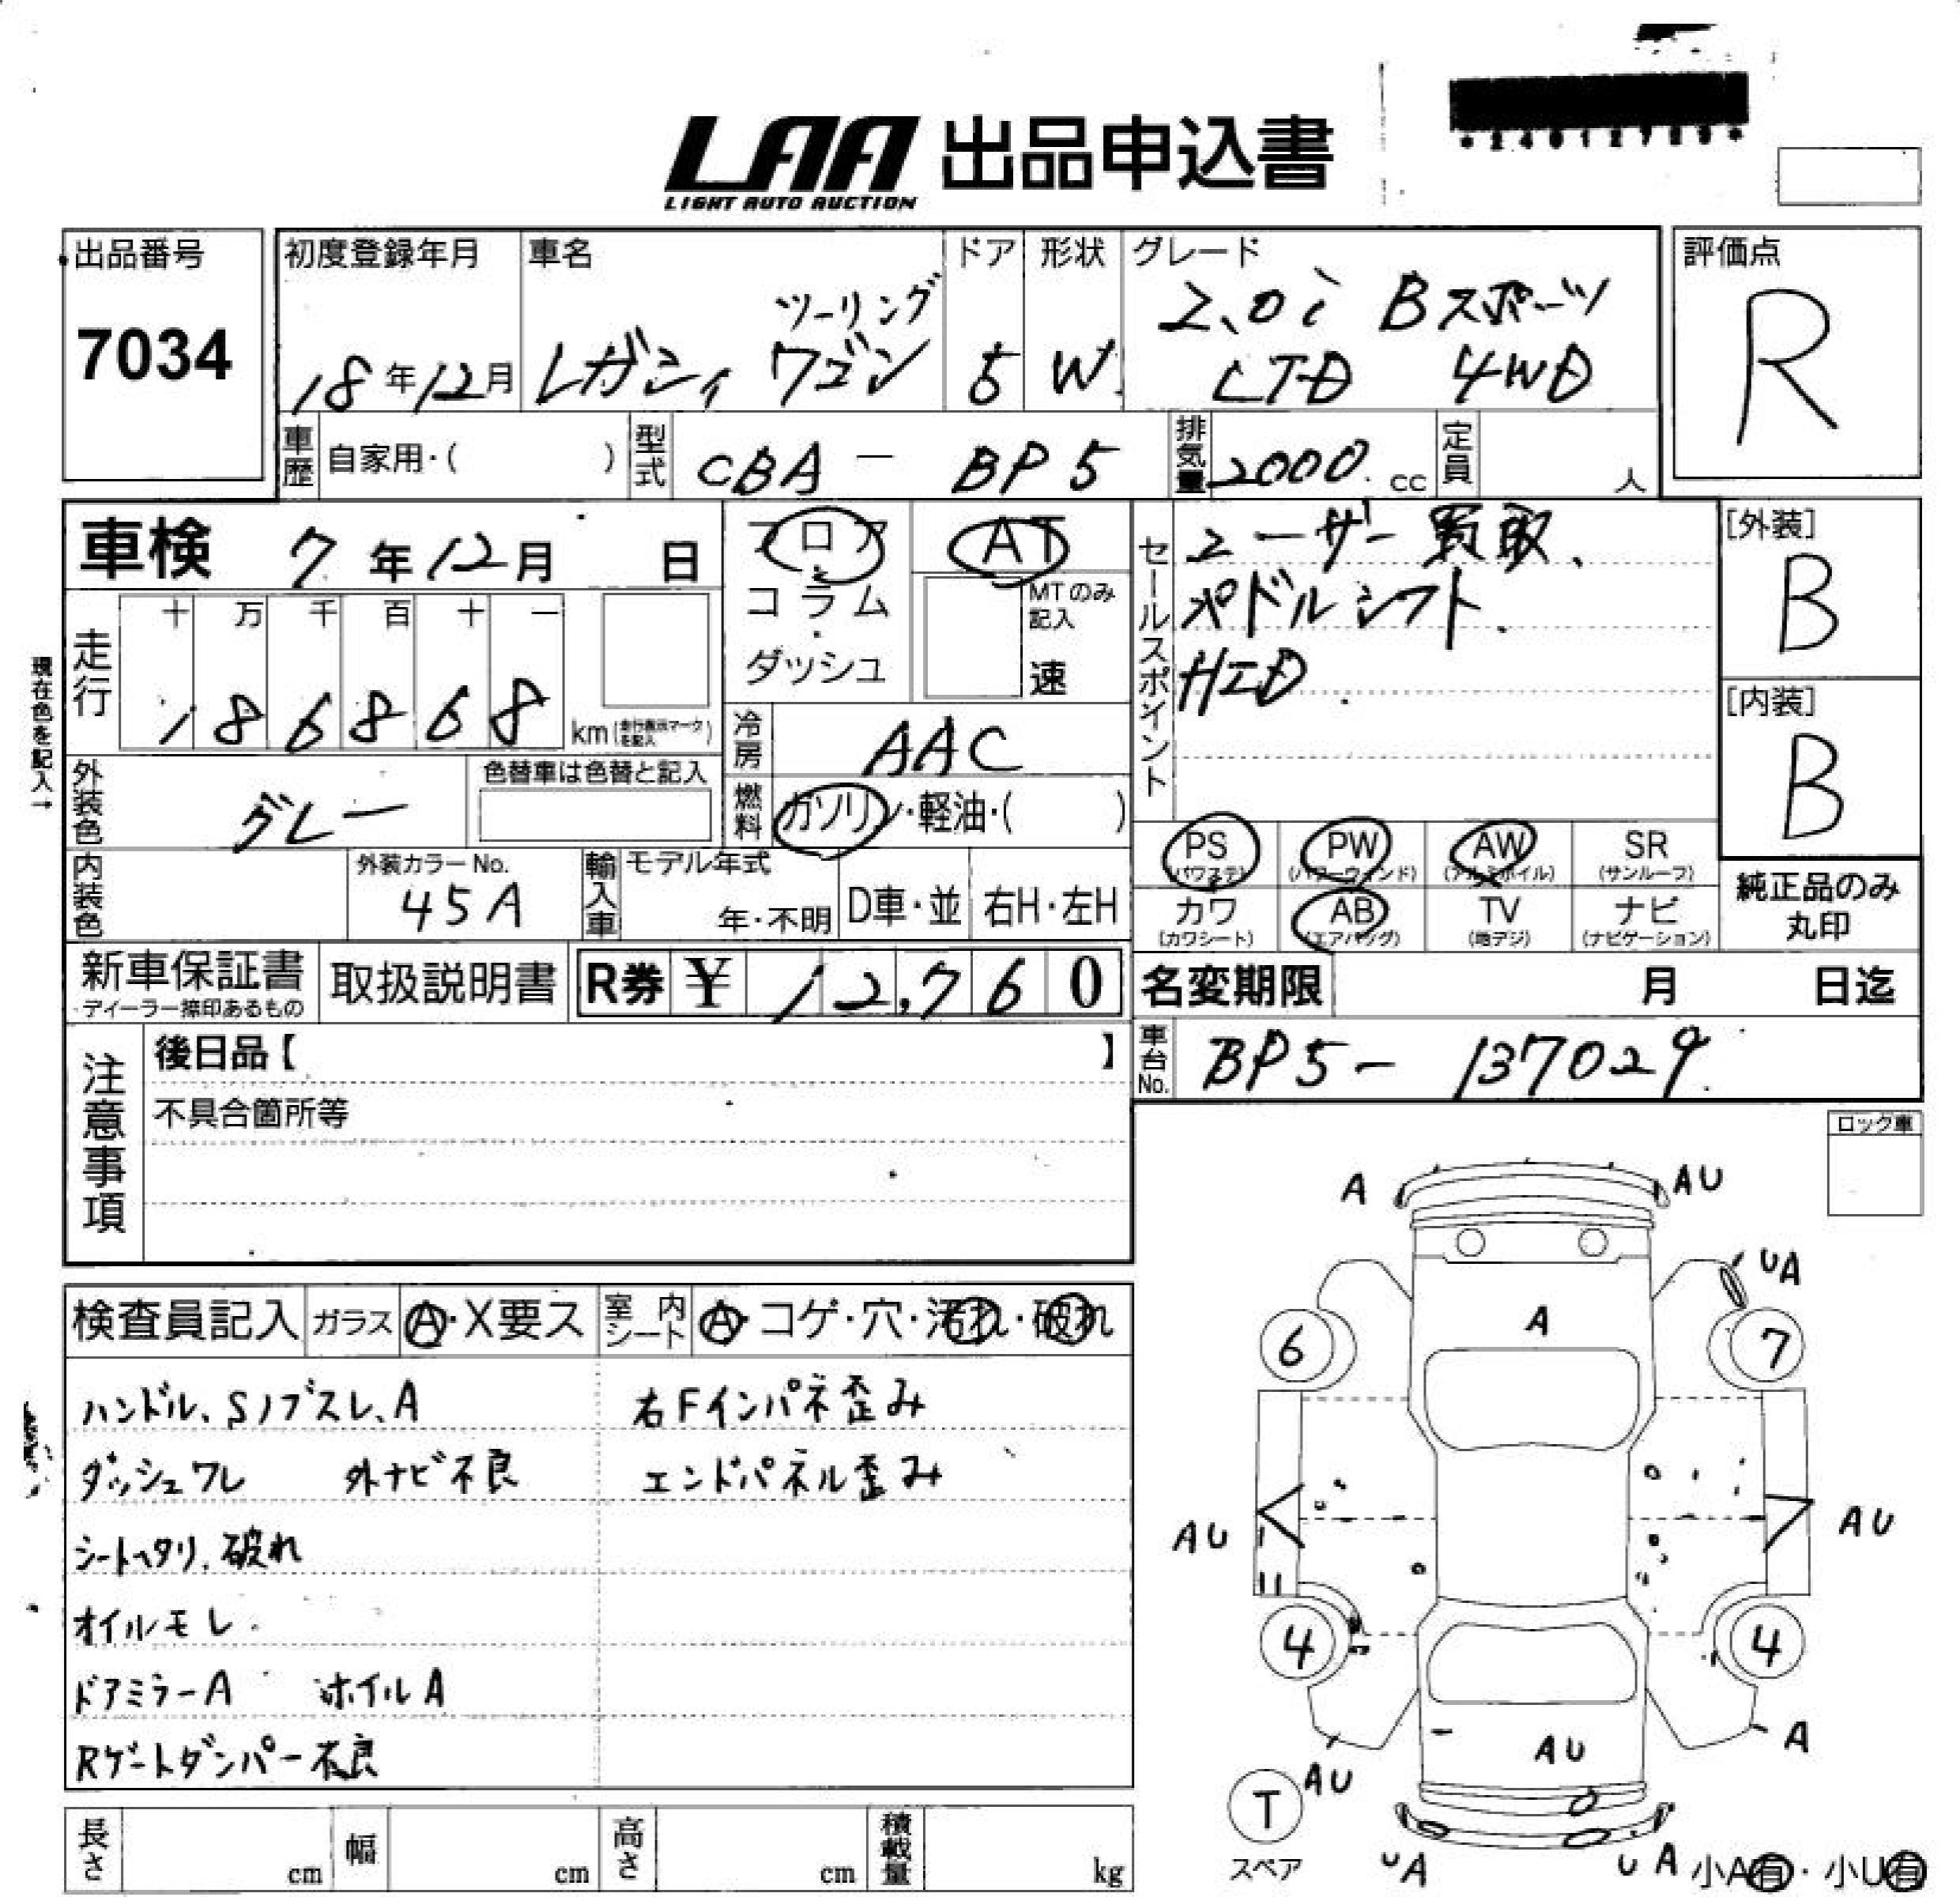 LAA 出品申込書
LIGHT AUTO AUCTION
出品番号
7034
初度登録年月
18年12月
車名
ツーリング
レガシィ ワゴン
ドア
5
形状
W
グレード
2.0i Bスポーツ
LTD 4WD
評価点
R
車歴 自家用・( )
型式 CBA - BP5
排気量 2000. cc
定員 人
車検 7年12月 日
フロア
コラム
・
ダッシュ
AT
MTのみ
記入
速
セールスポイント
ユーザー買取、
パドルシフト、
HID.
[外装]
B
[内装]
B
現在色を記入→
走行
十 万 千 百 十 一
1 8 6 8 6 8
km(走行表示マークを記入)
冷房 AAC
燃料 ガソリン・軽油・( )
外装色 グレー
色替車は色替と記入
内装色
外装カラーNo.
45A
輸入車
モデル年式
年・不明
D車・並
右H・左H
PS
(パワステ)
PW
(パワーウィンド)
AW
(アルミホイル)
SR
(サンルーフ)
カワ
(カワシート)
AB
(エアバッグ)
TV
(地デジ)
ナビ
(ナビゲーション)
純正品のみ
丸印
新車保証書
・ディーラー捺印あるもの
取扱説明書
R券 ¥ 12,760
名変期限 月 日迄
車台No. BP5- 137029
注意事項
後日品【 】
不具合箇所等
ロック車
検査員記入
ガラス A・X要ス
室内シート A・コゲ・穴・汚れ・破れ
ハンドル、Sノブスレ、A
右Fインパネ歪み
ダッシュワレ 外ナビ不良
エンドパネル歪み
シートヘタリ、破れ
オイルモレ
ドアミラーA ホイルA
Rゲートダンパー不良
A
AU
UA
A
6
7
AU
AU
4
4
A
AU
AU
T
スペア
UA
UA
小A有・小U有
長さ cm
幅 cm
高さ cm
積載量 kg